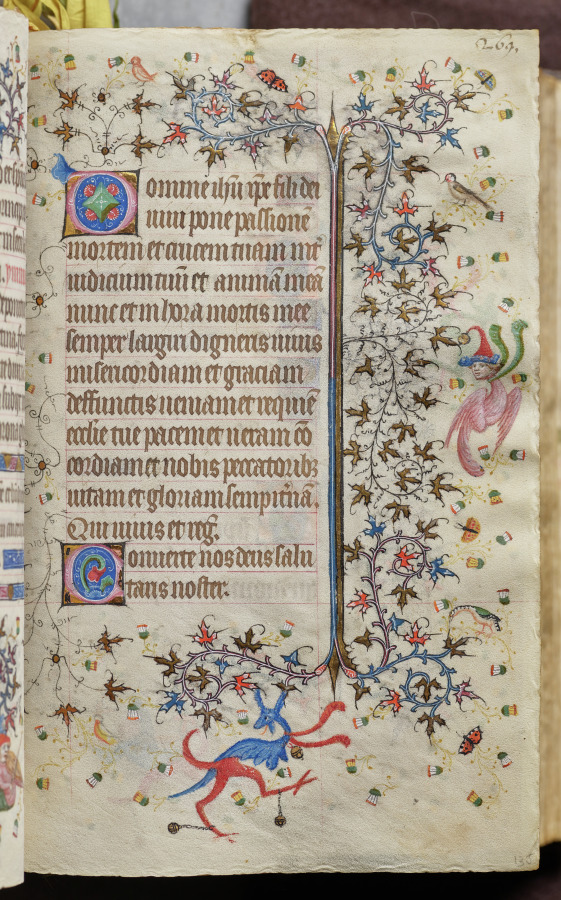 269.
Domine ihū xp̄e fili dei
uiui pone passionē
mortem et crucem tuam int̄
iudicium tuū et animā meā
nunc et in hora mortis mee
semper largiri digneris uiuis
misericordiam et graciam
deffunctis ueniam et requiē
ecclie tue pacem et ueram cō
cordiam et nobis peccatoribꝫ
uitam et gloriam sempit̄nā.
Qui uiuis et reḡ.
Conuerte nos deus salu
taris noster.
135